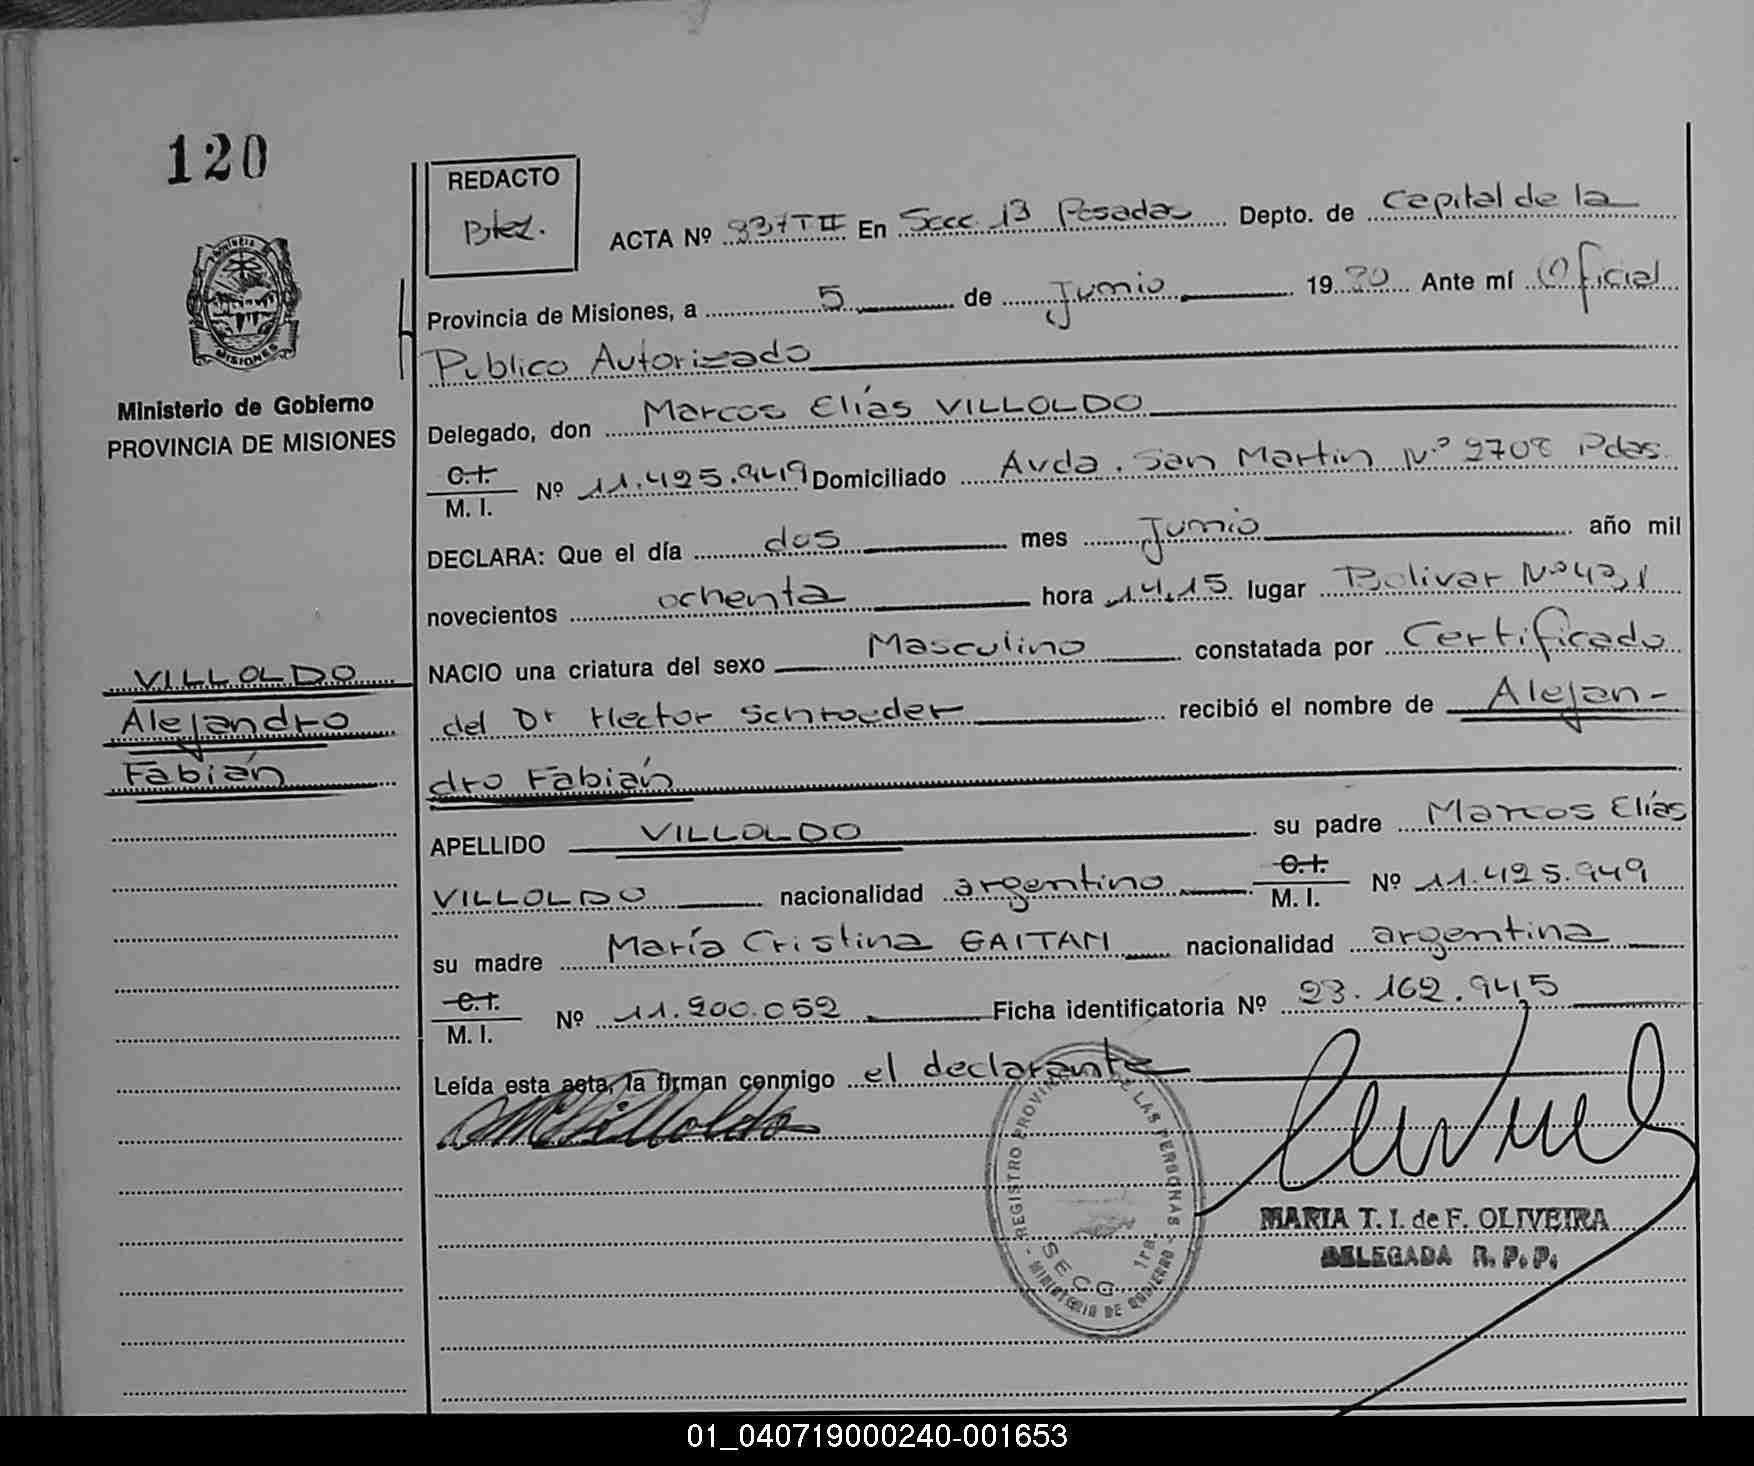 120
REDACTO
Btez.
ACTA Nº 937 T II En Secc. 1ª Posadas Depto. de Capital de la
Provincia de Misiones, a 5 de Junio 1980 Ante mí Oficial
Publico Autorizado
PROVINCIA
MISIONES
Ministerio de Gobierno
PROVINCIA DE MISIONES
Delegado, don Marcos Elías VILLOLDO
C.I.
M. I. Nº 11.425.949 Domiciliado Avda. San Martin Nº 2708 Pdas.
DECLARA: Que el día dos mes Junio año mil
novecientos ochenta hora 14,15 lugar Bolivar Nº 431
NACIO una criatura del sexo Masculino constatada por Certificado
del Dr Hector Schroeder recibió el nombre de Alejan-
dro Fabián
VILLOLDO
Alejandro
Fabián
APELLIDO VILLOLDO su padre Marcos Elías
VILLOLDO nacionalidad argentino C.I. M. I. Nº 11.425.949
su madre María Cristina GAITAN nacionalidad argentina
C.I.
M. I. Nº 11.900.052 Ficha identificatoria Nº 28.162.945
Leída esta acta, la firman conmigo el declarante
REGISTRO PROVINCIAL DE LAS PERSONAS
SECC. 1ra.
MINISTERIO DE GOBIERNO
MARIA T. I. de F. OLIVEIRA
DELEGADA R. P. P.
01_040719000240-001653